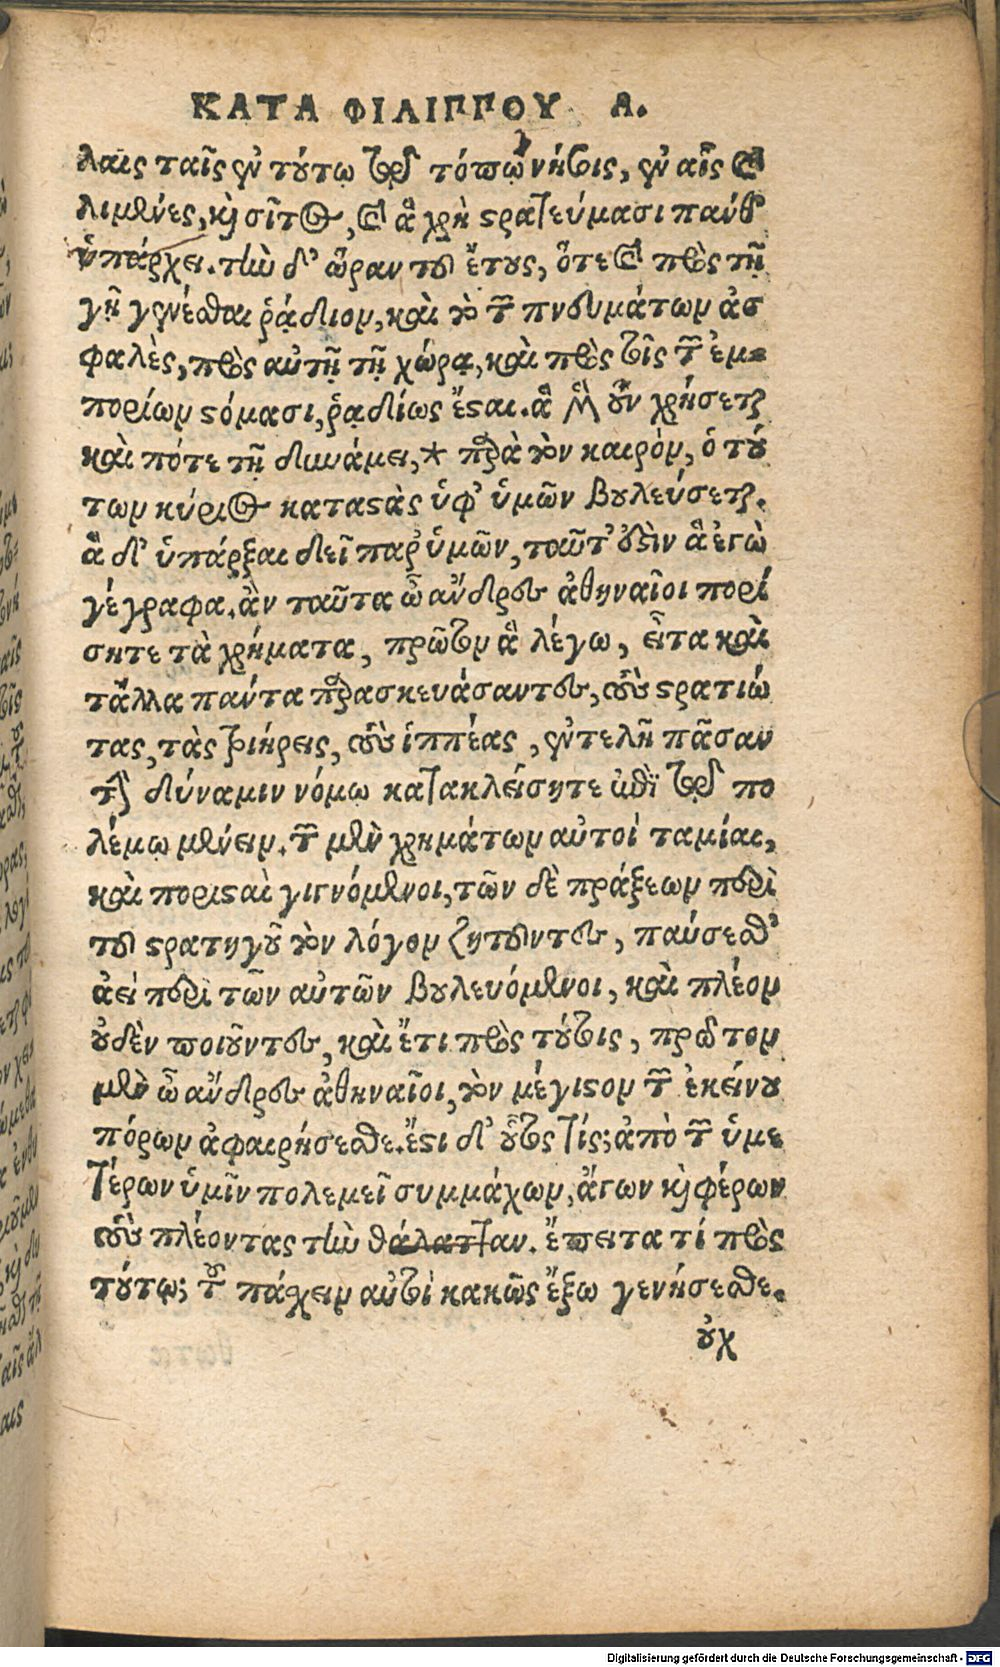 ΚΑΤΑ ΦΙΛΙΠΠΟΥ Α.
λαις ταῖς ἐν τούτῳ τῷ τόπῳ νήσοις, ἐν αἷς καὶ
λιμένες, καὶ σῖτος, καὶ ἃ χρὴ στρατεύμασι πάνθ'
ὑπάρχει. τὴν δ' ὥραν τοῦ ἔτους, ὅτε καὶ πρὸς τῇ
γῇ γενέσθαι ῥᾴδιον, καὶ τὸ τῶν πνευμάτων ἀσ
φαλὲς, πρὸς αὐτῇ τῇ χώρᾳ, καὶ πρὸς τοῖς τῶν ἐμ-
πορίων στόμασι, ῥᾳδίως ἔσται. ἃ μὲν οὖν χρήσεται
καὶ πότε τῇ δυνάμει, * παρὰ τὸν καιρὸν, ὁ τού
των κύριος καταστὰς ὑφ' ὑμῶν βουλεύσεται.
ἃ δ' ὑπάρξαι δεῖ παρ' ὑμῶν, ταῦτ' ἐστὶν ἃ ἐγὼ
γέγραφα. ἂν ταῦτα ὦ ἄνδρες ἀθηναῖοι πορί
σητε τὰ χρήματα, πρῶτον ἃ λέγω, εἶτα καὶ
τἄλλα πάντα παρασκευάσαντες, τοὺς στρατιώ
τας, τὰς τριήρεις, τοὺς ἱππέας, ἐντελῆ πᾶσαν
τὴν δύναμιν νόμῳ κατακλείσητε ἐπὶ τῷ πο
λέμῳ μένειν. τῶν μὲν χρημάτων αὐτοὶ ταμίαι,
καὶ πορισταὶ γιγνόμενοι, τῶν δὲ πράξεων περὶ
τοῦ στρατηγοῦ τὸν λόγον ζητοῦντες, παύσεσθ'
ἀεὶ περὶ τῶν αὐτῶν βουλευόμενοι, καὶ πλέον
οὐδὲν ποιοῦντες, καὶ ἔτι πρὸς τούτοις, πρῶτον
μὲν ὦ ἄνδρες ἀθηναῖοι, τὸν μέγιστον τῶν ἐκείνου
πόρων ἀφαιρήσεσθε. ἔστι δ' οὗτος τίς; ἀπὸ τῶν ὑμε
τέρων ὑμῖν πολεμεῖ συμμάχων, ἄγων καὶ φέρων
τοὺς πλέοντας τὴν θάλατταν. ἔπειτα τί πρὸς
τούτῳ; τοῦ πάσχειν αὐτοὶ κακῶς ἔξω γενήσεσθε.
οὐχ
Digitalisierung gefördert durch die Deutsche Forschungsgemeinschaft - DFG